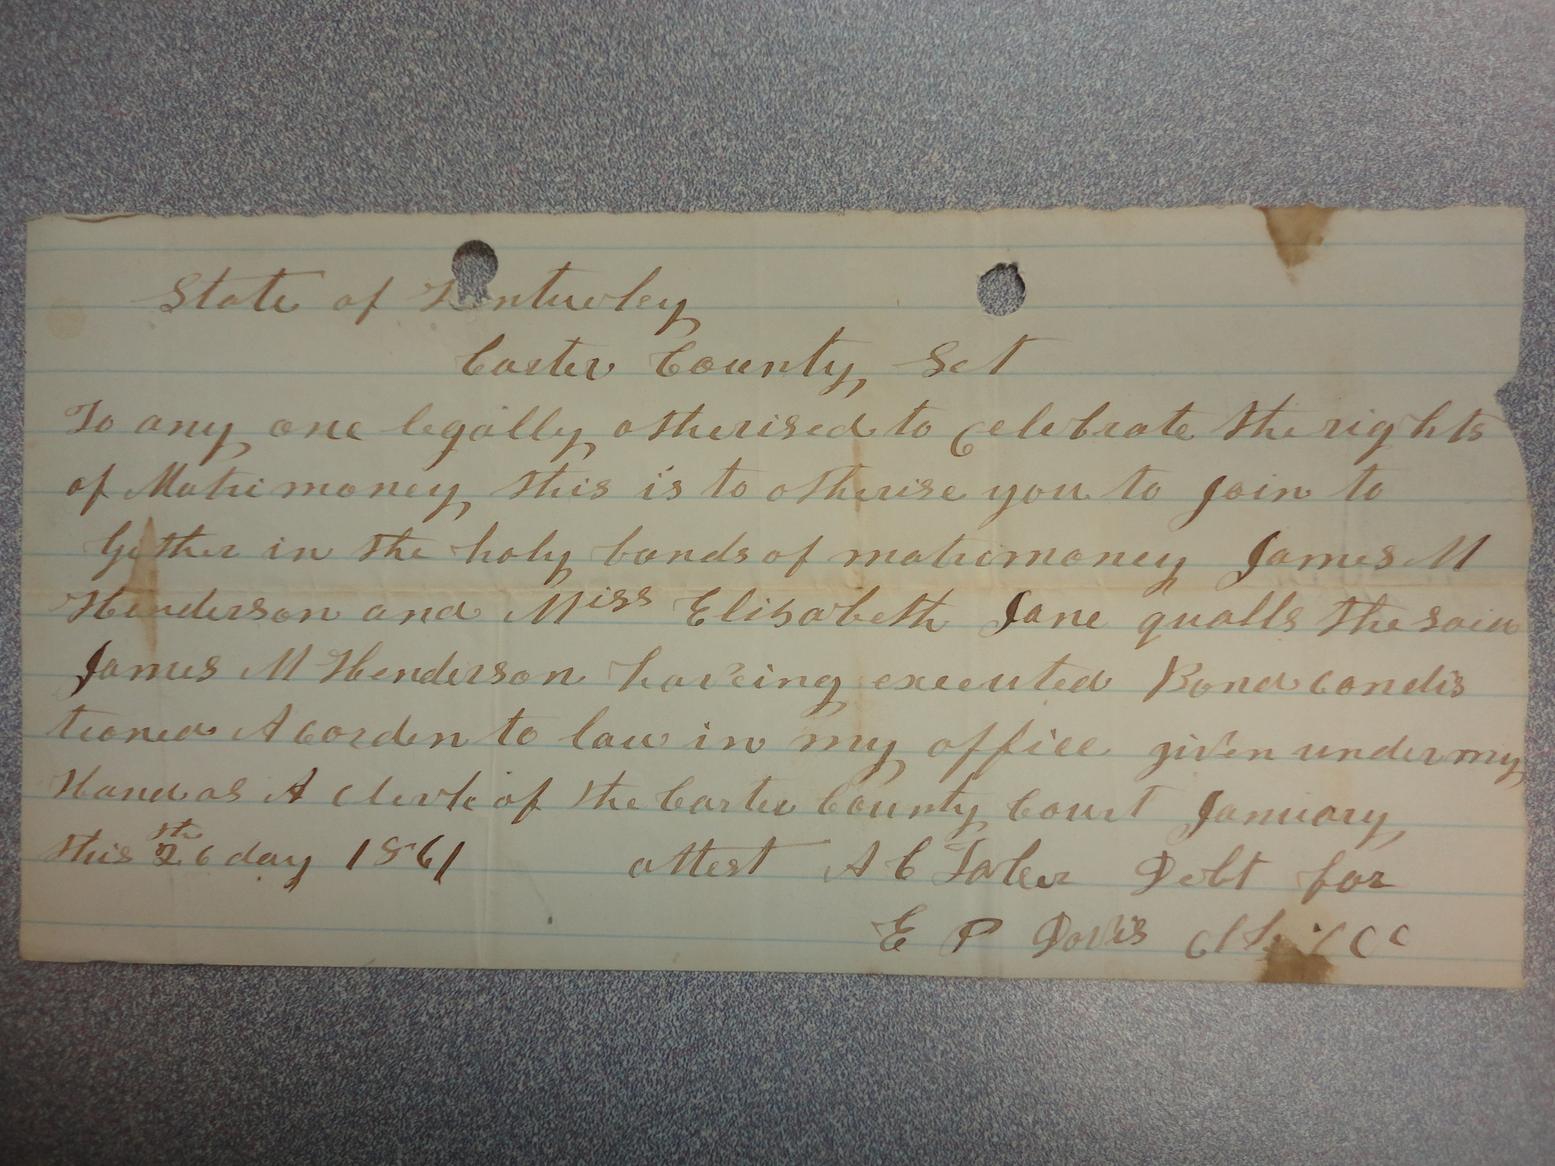 State of Kentucky
Carter County Sct
To any one legally otherised to Celebrate the rights
of Matrimoney this is to otherise you to join to
gether in the holy bonds of matrimoney James M
Henderson and Miss Elisabeth Jane qualls the said
James M Henderson haveing executed Bond condis
tioned Acorden to law in my office given under my
Hand as A clerk of the Carter County Court January
this 26th day 1861 attest A C Debt for
E P Davis C C C